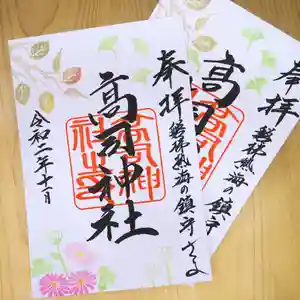 奉拝
磐梯熱海の鎮守さま
高司神社
令和二年十一月
奉拝
磐梯熱海の鎮守
高司